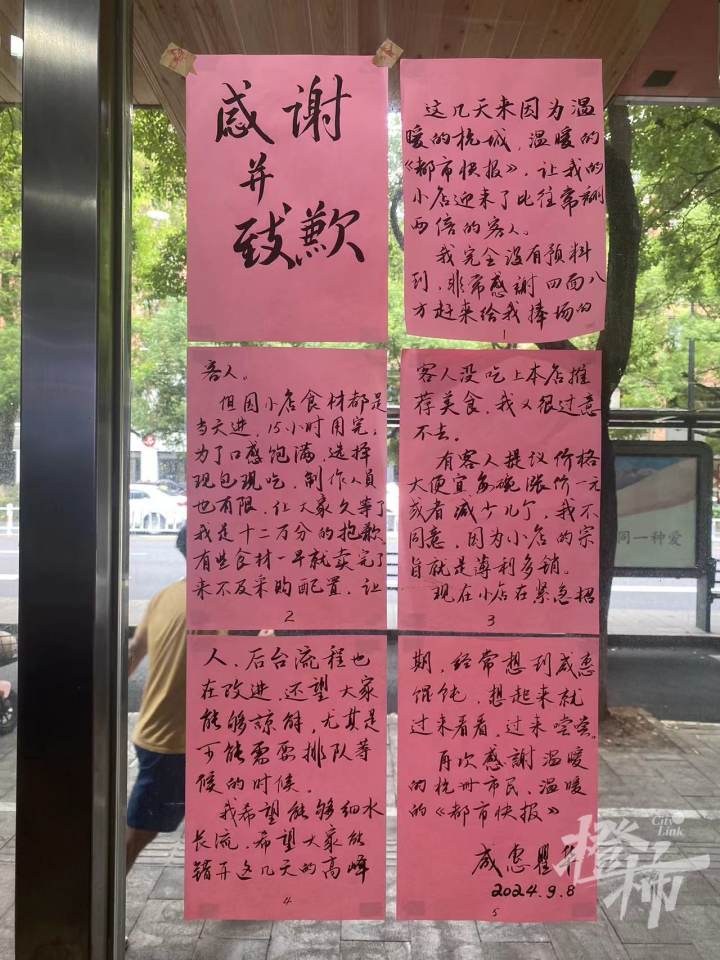 感谢
并
致歉
这几天来因为温
暖的杭城，温暖的
《都市快报》，让我的
小店迎来了比往常翻
两倍的客人。
我完全没有预料
到，非常感謝四面八
方赶来给我捧场的
1
客人。
但因小店食材都是
当天进，15小时用完，
为了口感饱满，选择
现包现吃，制作人員
也有限，让大家久等了
我是十二万分的抱歉，
有些食材一早就卖完了
来不及采购配置，让
2
客人没吃上本店推
荐美食，我又很过意
不去。
有客人提议价格
太便宜每碗涨价一元
或者减少几个，我不
同意，因为小店的宗
旨就是薄利多销。
现在小店在紧急招
3
人，后台流程也
在改进，还望大家
能够諒解，尤其是
可能需要排队等
候的时候。
我希望能够细水
长流，希望大家能
错开这几天的高峰
4
期，经常想到咸惠
馄饨，想起来就
过来看看，过来尝尝。
再次感謝温暖
的杭州市民，温暖
的《都市快报》
咸惠
2024.9.8
5
同一种爱
City
Link
橙柿